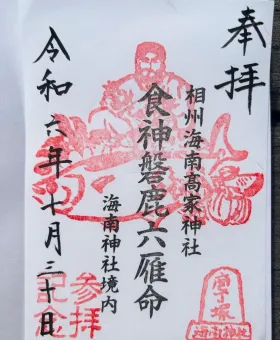 奉拝
相州海南高家神社
食神磐鹿六雁命
海南神社境内
令和六年十月三十日
参拝
記念
包丁塚
海南神社